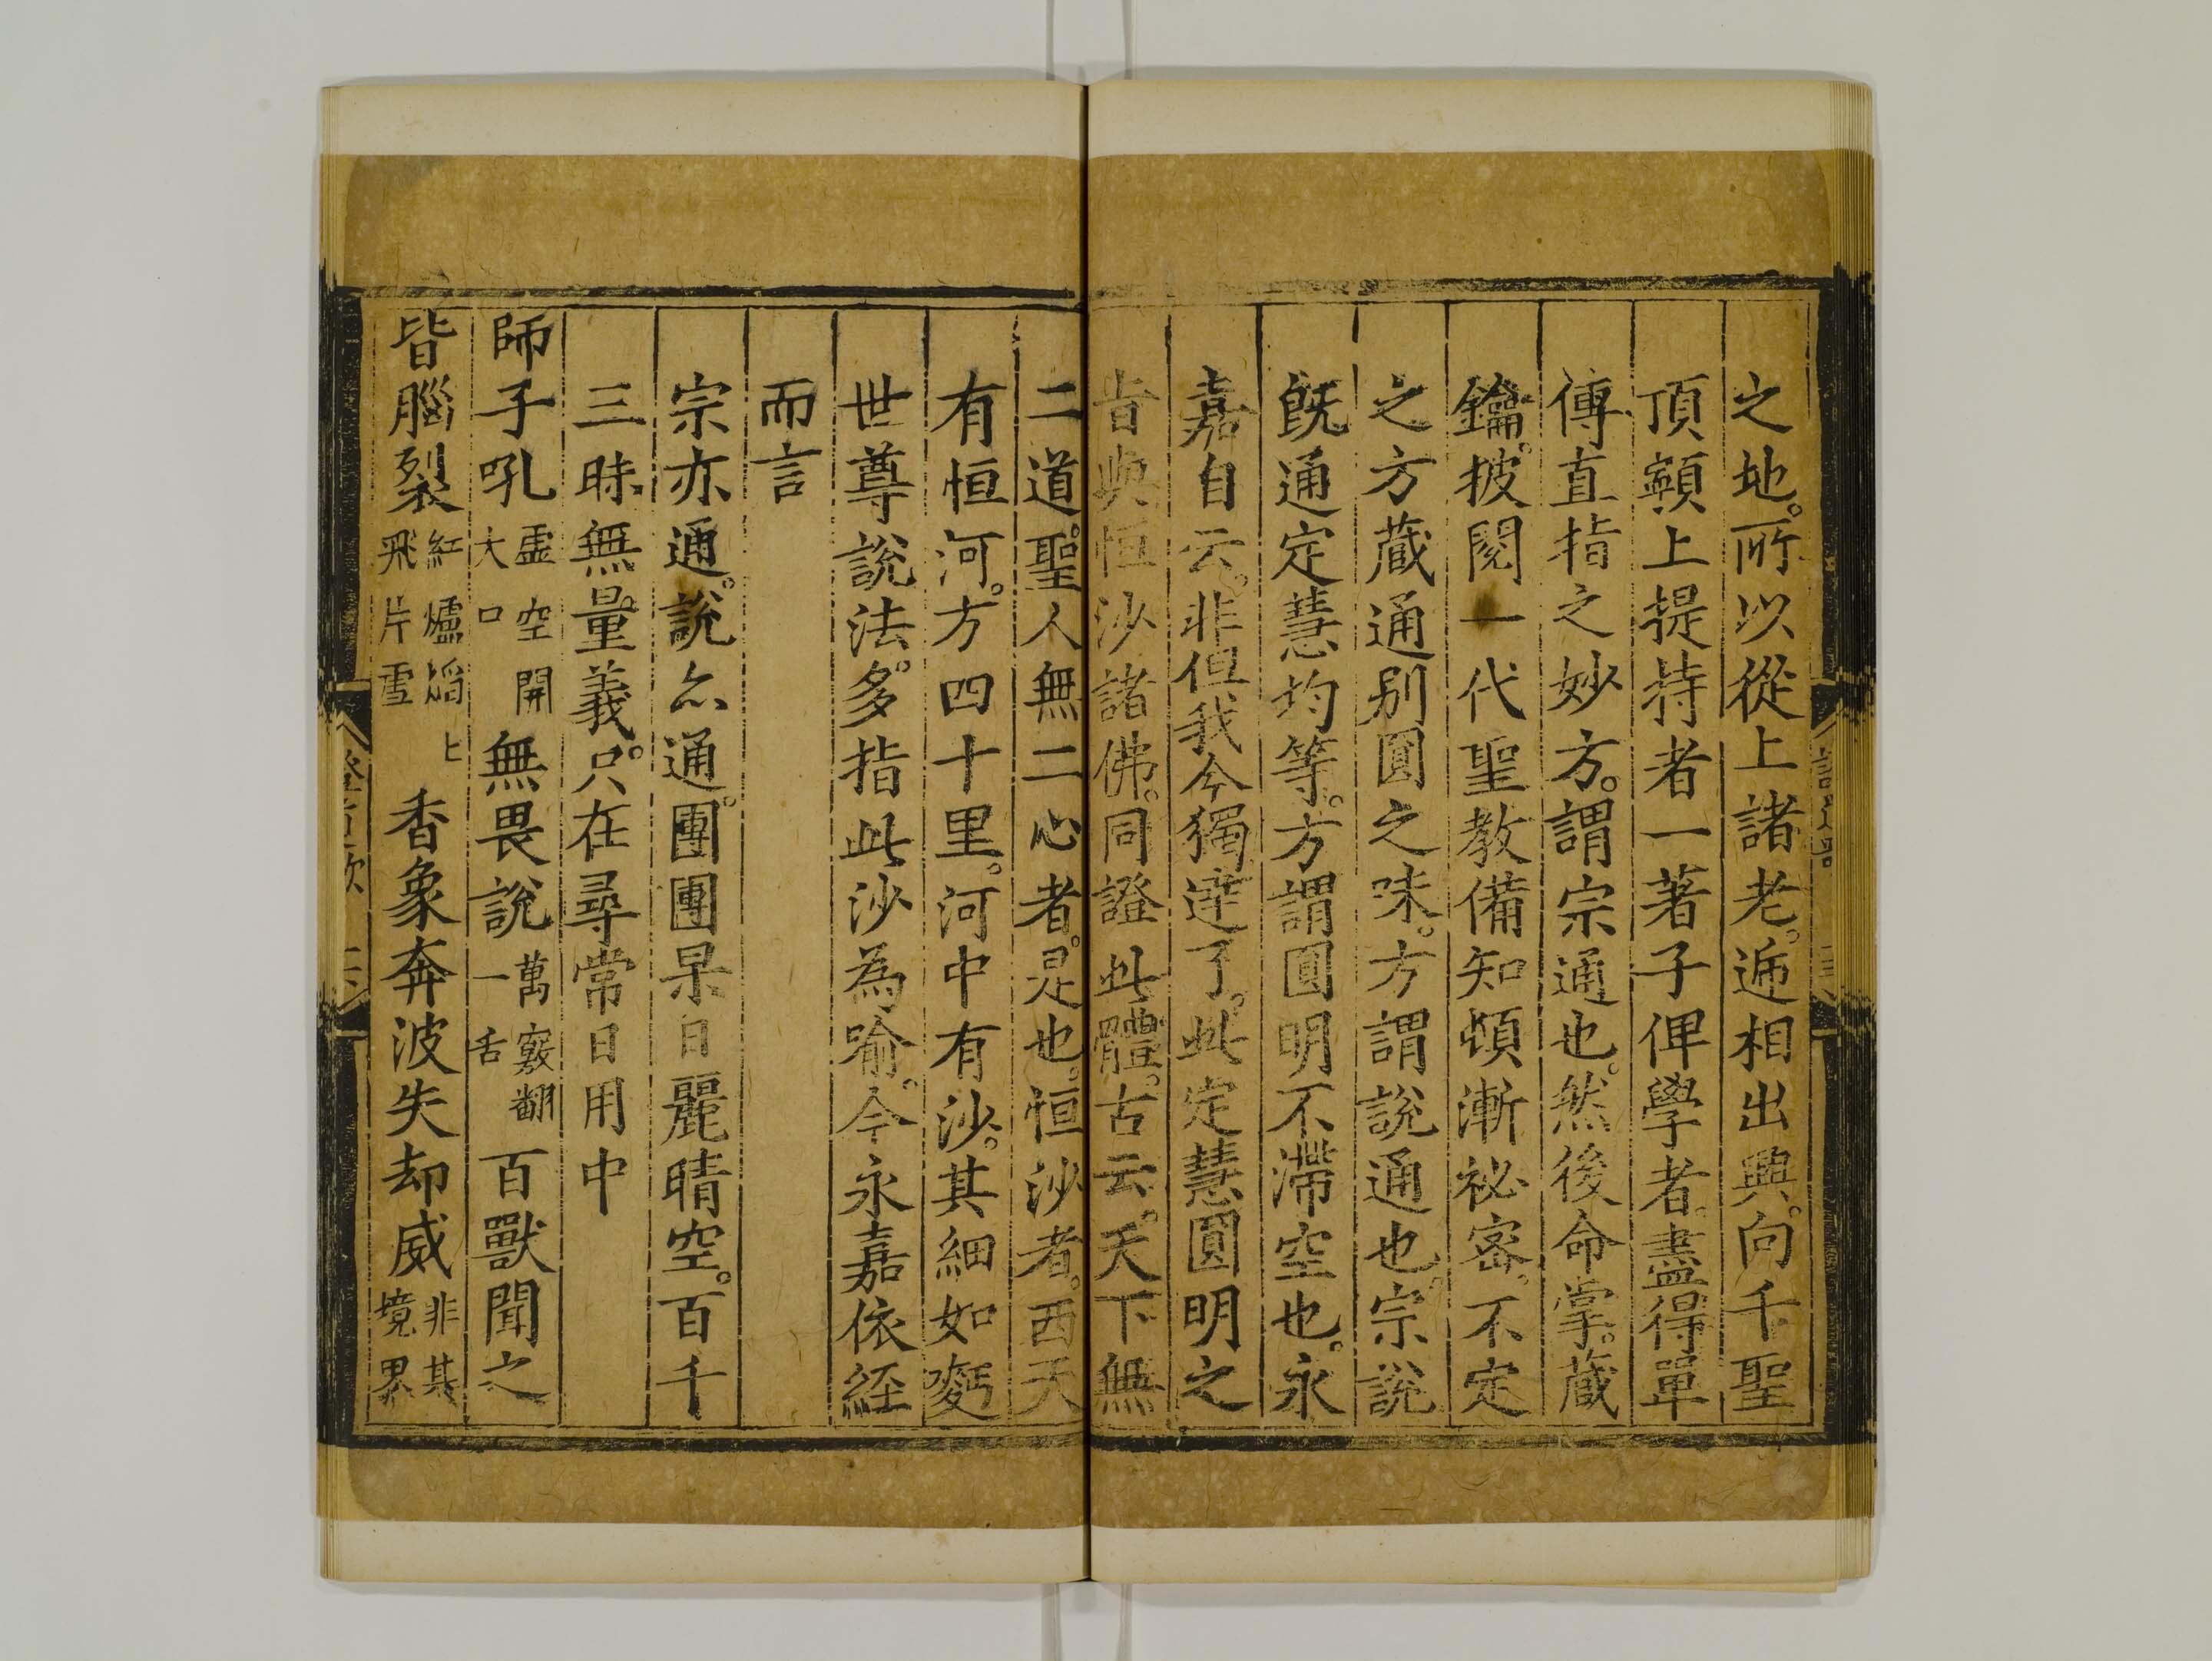 之地。所以從上諸老。遞相出興。向千聖
頂𩕳上提持者一著子俾學者。盡得單
傳直指之妙方。謂宗通也。然後命掌。蔵
鑰。披閱一代聖教備知頓漸祕密。不定
之方蔵通別圓之味。方謂說通也。宗說
旣通定慧均等。方謂圓明不滯空也。永
嘉自云。非但我今獨達了。此定慧圓明之
旨與恒沙諸佛。同證此體。古云。天下無
二道。聖人無二心者。是也。恒沙者。西天
有恒河。方四十里。河中有沙。其細如麪
世尊說法。多指此沙為喻。今永嘉依經
而言
宗亦通。說亦通。團團杲日麗晴空。百千
三昧無量義。只在尋常日用中
師子吼虛空開大口無畏說萬竅翻一舌百獸聞之
皆腦裂紅爐焰上飛片雪香象奔波失却威非其境界
證道歌